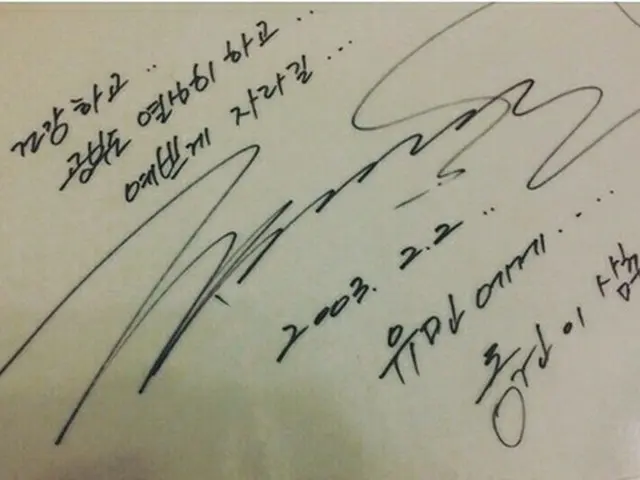 건강 하고 ..
공부도 열심히 하고 ..
예쁘게 자라길 ...
2003. 2.2 ..
유민 에게 ....
이 삼촌